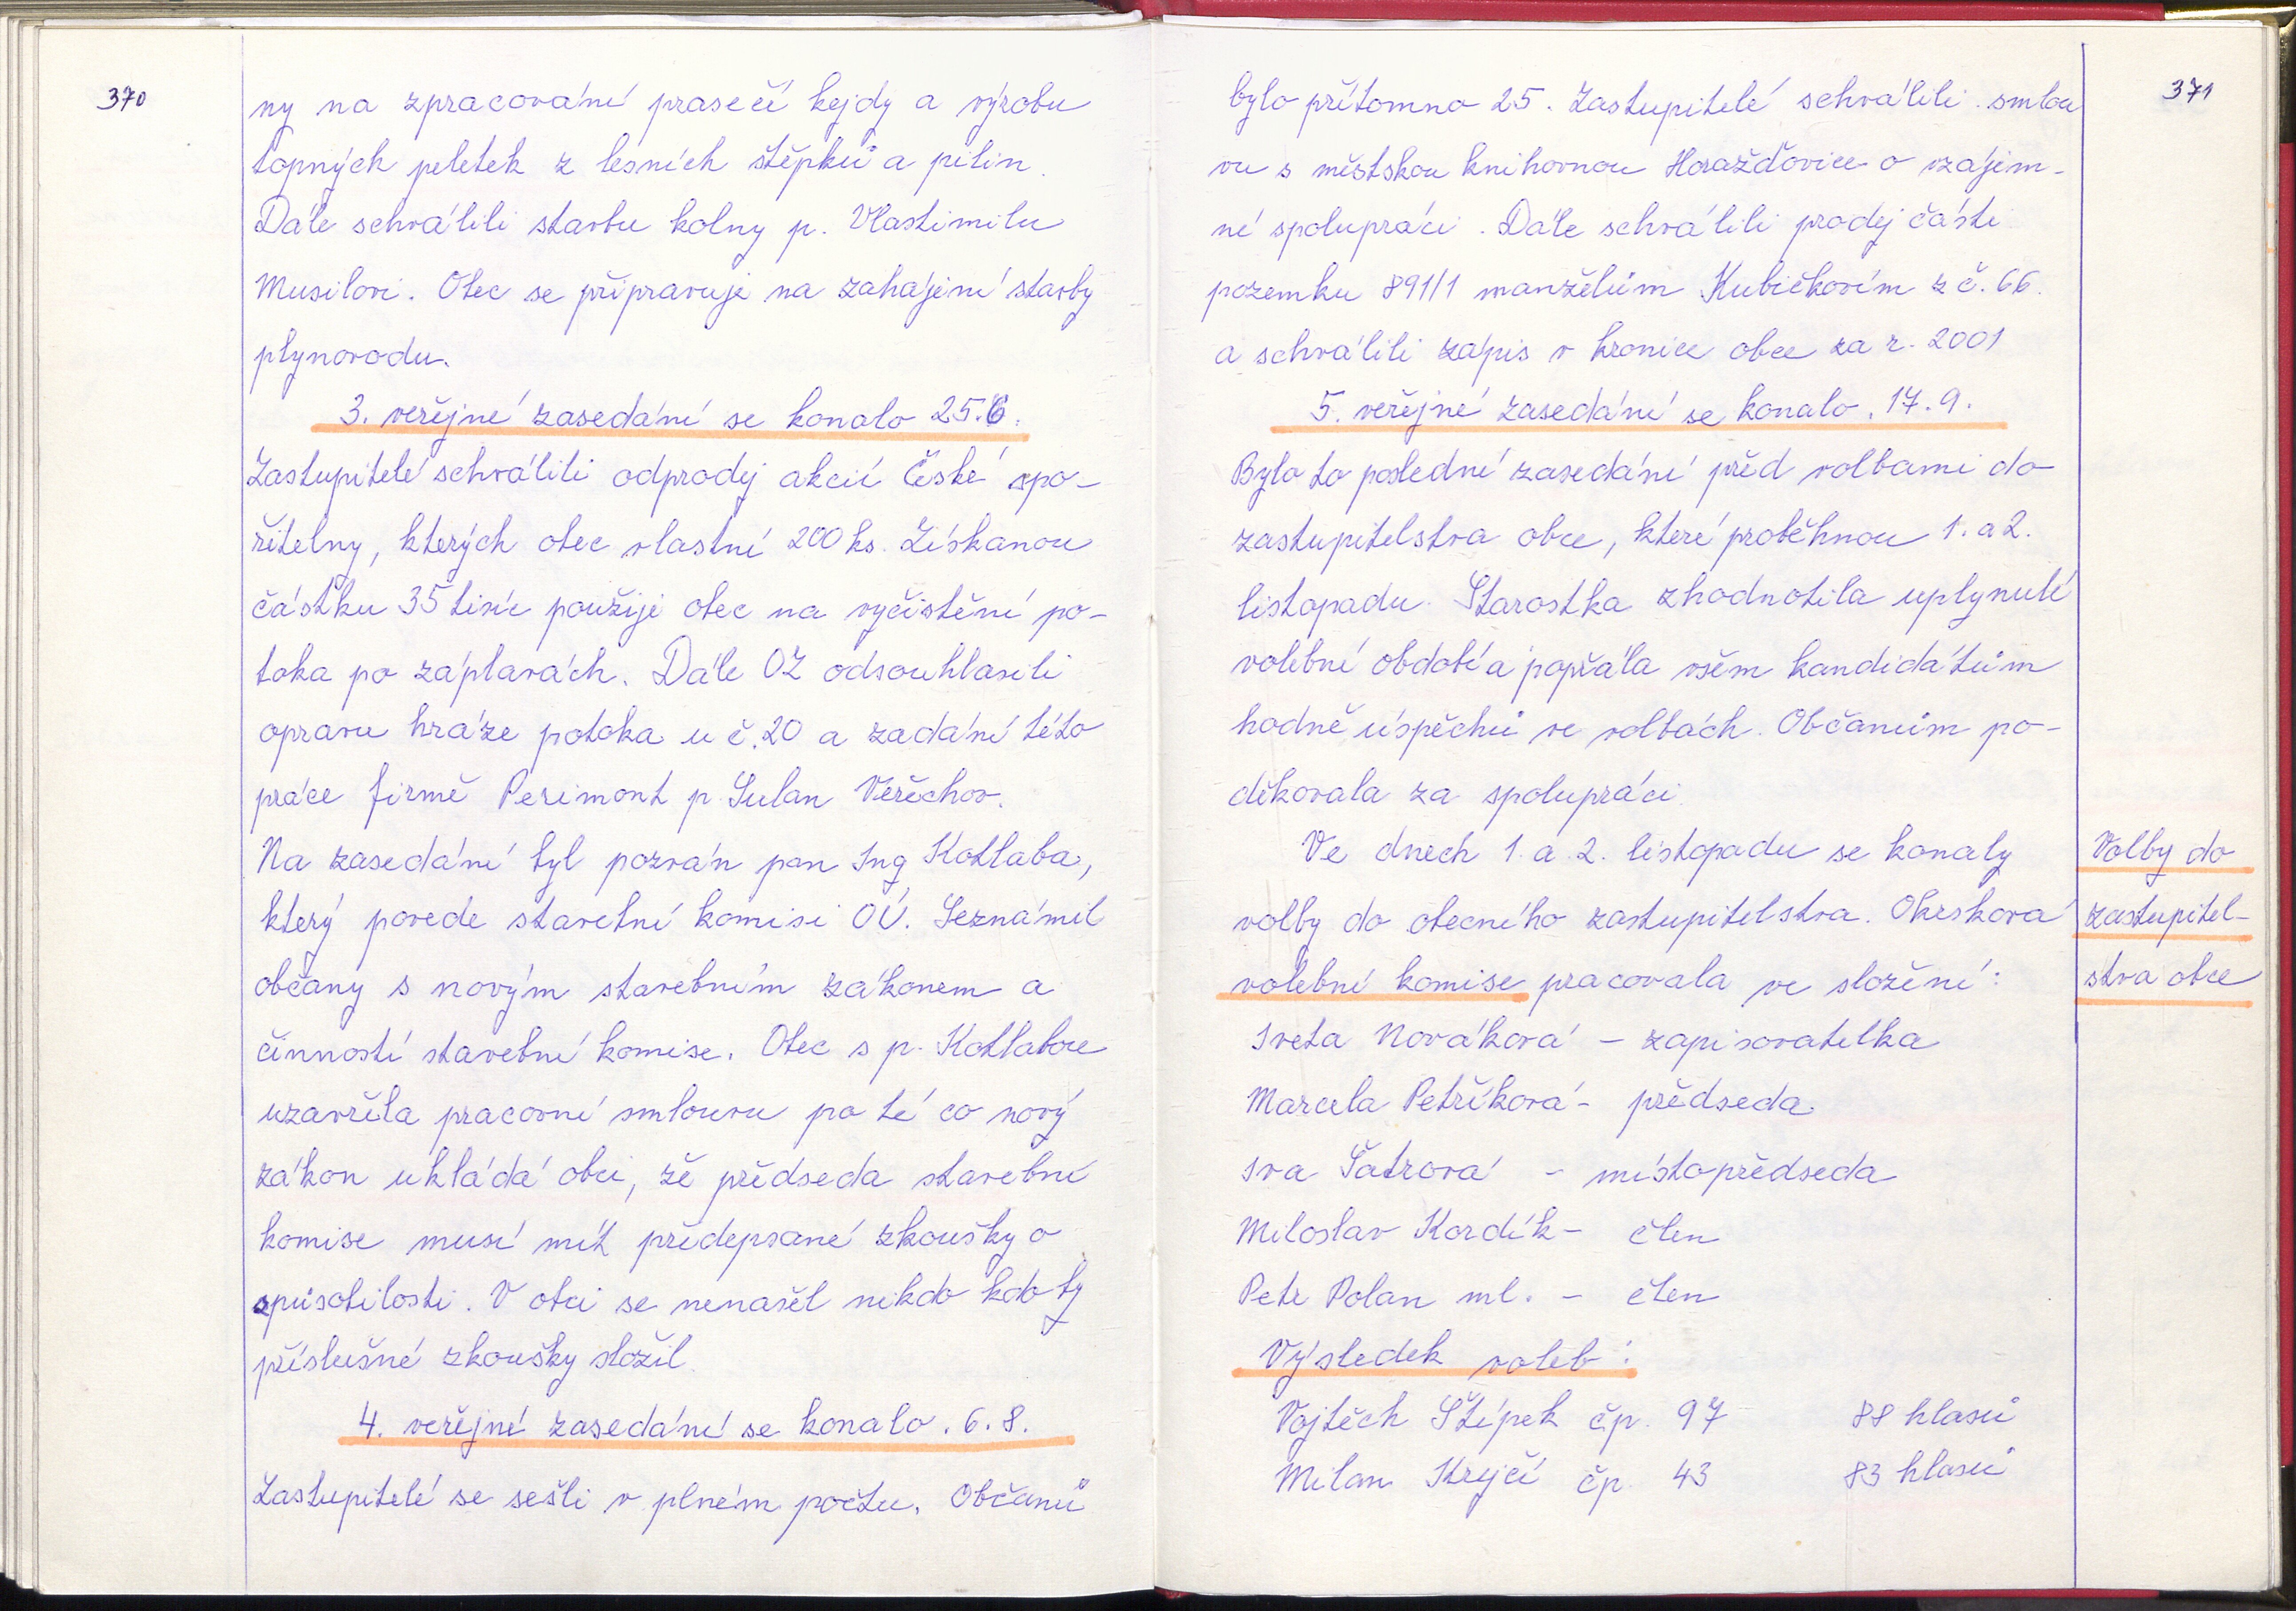 370
ny na zpracování prasečí kejdy a výrobu
topných peletek z lesních štěpků a pilin.
Dále schválili stavbu kolny p. Vlastimilu
Musilovi. Obec se připravuje na zahájení stavby
plynovodu.
3. veřejné zasedání se konalo 25.6.
Zastupitelé schválili odprodej akcií České spo-
řitelny, kterých obec vlastní 200 ks. Získanou
částku 35 tisíc použije obec na vyčistění po-
toka po záplavách. Dále OZ odsouhlasili
opravu hráze potoka u č. 20 a zadání této
práce firmě Perimont p. Sulan Věřechov.
Na zasedání byl pozván pan Ing Kotlaba,
který povede stavební komisi OÚ. Seznámil
občany s novým stavebním zákonem a
činností stavební komise. Obec s p. Kotlabou
uzavřela pracovní smlouvu po té co nový
zákon ukládá obci, že předseda stavební
komise musí mít předepsané zkoušky o
způsobilosti. V obci se nenašel nikdo kdo by
příslušné zkoušky složil.
4. veřejné zasedání se konalo . 6. 8.
Zastupitelé se sešli v plném počtu. Občanů
371
bylo přítomno 25. Zastupitelé schválili smlou
vu s městskou knihovnou Horažďovice o vzájem-
né spolupráci. Dále schválili prodej části
pozemku 891/1 manželům Kubičkovím z č. 66.
a schválili zápis v kronice obce za r. 2001
5. veřejné zasedání se konalo . 17. 9.
Bylo to poslední zasedání před volbami do
zastupitelstva obce, které proběhnou 1. a 2.
listopadu. Starostka zhodnotila uplynulé
volební období a popřála všem kandidátům
hodně úspěchů ve volbách. Občanům po-
děkovala za spolupráci.
Ve dnech 1. a 2. listopadu se konaly
volby do obecního zastupitelstva. Okrsková
volební komise pracovala ve složení:
Iveta Nováková - zapisovatelka
Marcela Petříková - předseda
Iva Šatrová - místopředseda
Miloslav Kordík - člen
Petr Polan ml. - člen
Výsledek voleb:
Vojtěch Štípek čp. 97 88 hlasů
Milan Krejčí čp. 43 83 hlasů
Volby do
zastupitel-
stva obce